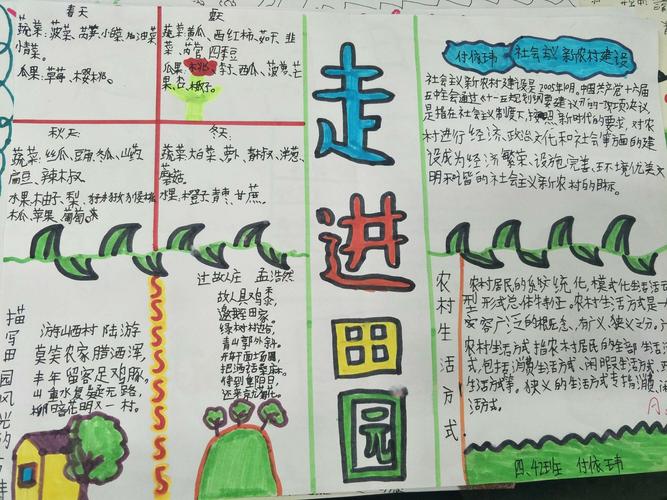 春天
蔬菜:菠菜、莴笋、小菜、油菜
小青菜。
瓜果:草莓、樱桃。
夏天
蔬菜:黄瓜、西红柿、茄子、韭
菜、莴笋、四季豆
瓜果:桃、李子、西瓜、菠萝、芒
果、杏、椰子。
秋天:
蔬菜:丝瓜、豆角、冬瓜、山药
扁豆、辣椒
水果:柚子、梨、
木瓜、苹果、葡萄。
冬天:
蔬菜:大白菜、萝卜、青椒、洋葱、
蘑菇。
水果:橙子、青枣、甘蔗
走进田园
付依玮
社会主义新农村建设
社会主义新农村建设是2005年10月,中国共产党十六届
五中全会通过《十一五规划纲要建议》的一项
是指在社会主义制度下,按照新时代的要求,对农
村进行经济、政治、文化和社会等方面的建
设成为经济繁荣、设施完善、环境优美、文
明和谐的社会主义新农村的目标。
描写田园风光的
游山西村 陆游
莫笑农家腊酒浑,
丰年留客足鸡豚。
山重水复疑无路,
柳暗花明又一村。
过故人庄 孟浩然
故人具鸡黍,
邀我至田家。
绿树村边合,
青山郭外斜。
开轩面场圃,
把酒话桑麻。
待到重阳日,
还来就菊花。
农村生活方式
农村居民的系统化,模式化生活活
型形式总体制正。农村生活方式是一
内容广泛的概念,有广义、狭义之分。
农村生活方式指农村居民的全部生活活
式,包括消费生活方式、闲暇生活方式、
生活方式等。狭义的生活方式专指消费、闲
活方式。
四、4班 付依玮